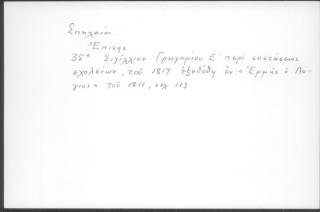 Σπηλαίοι
Ἐπίσης
35° Σιγίλλιον Γρηγορίου Ε' περί συστάσεως
σχολείων, τοῦ 1817 ἐξεδόθη ἐν "Ἑρμῆς ὁ Λό-
γιος" τοῦ 1811, σελ. 113.